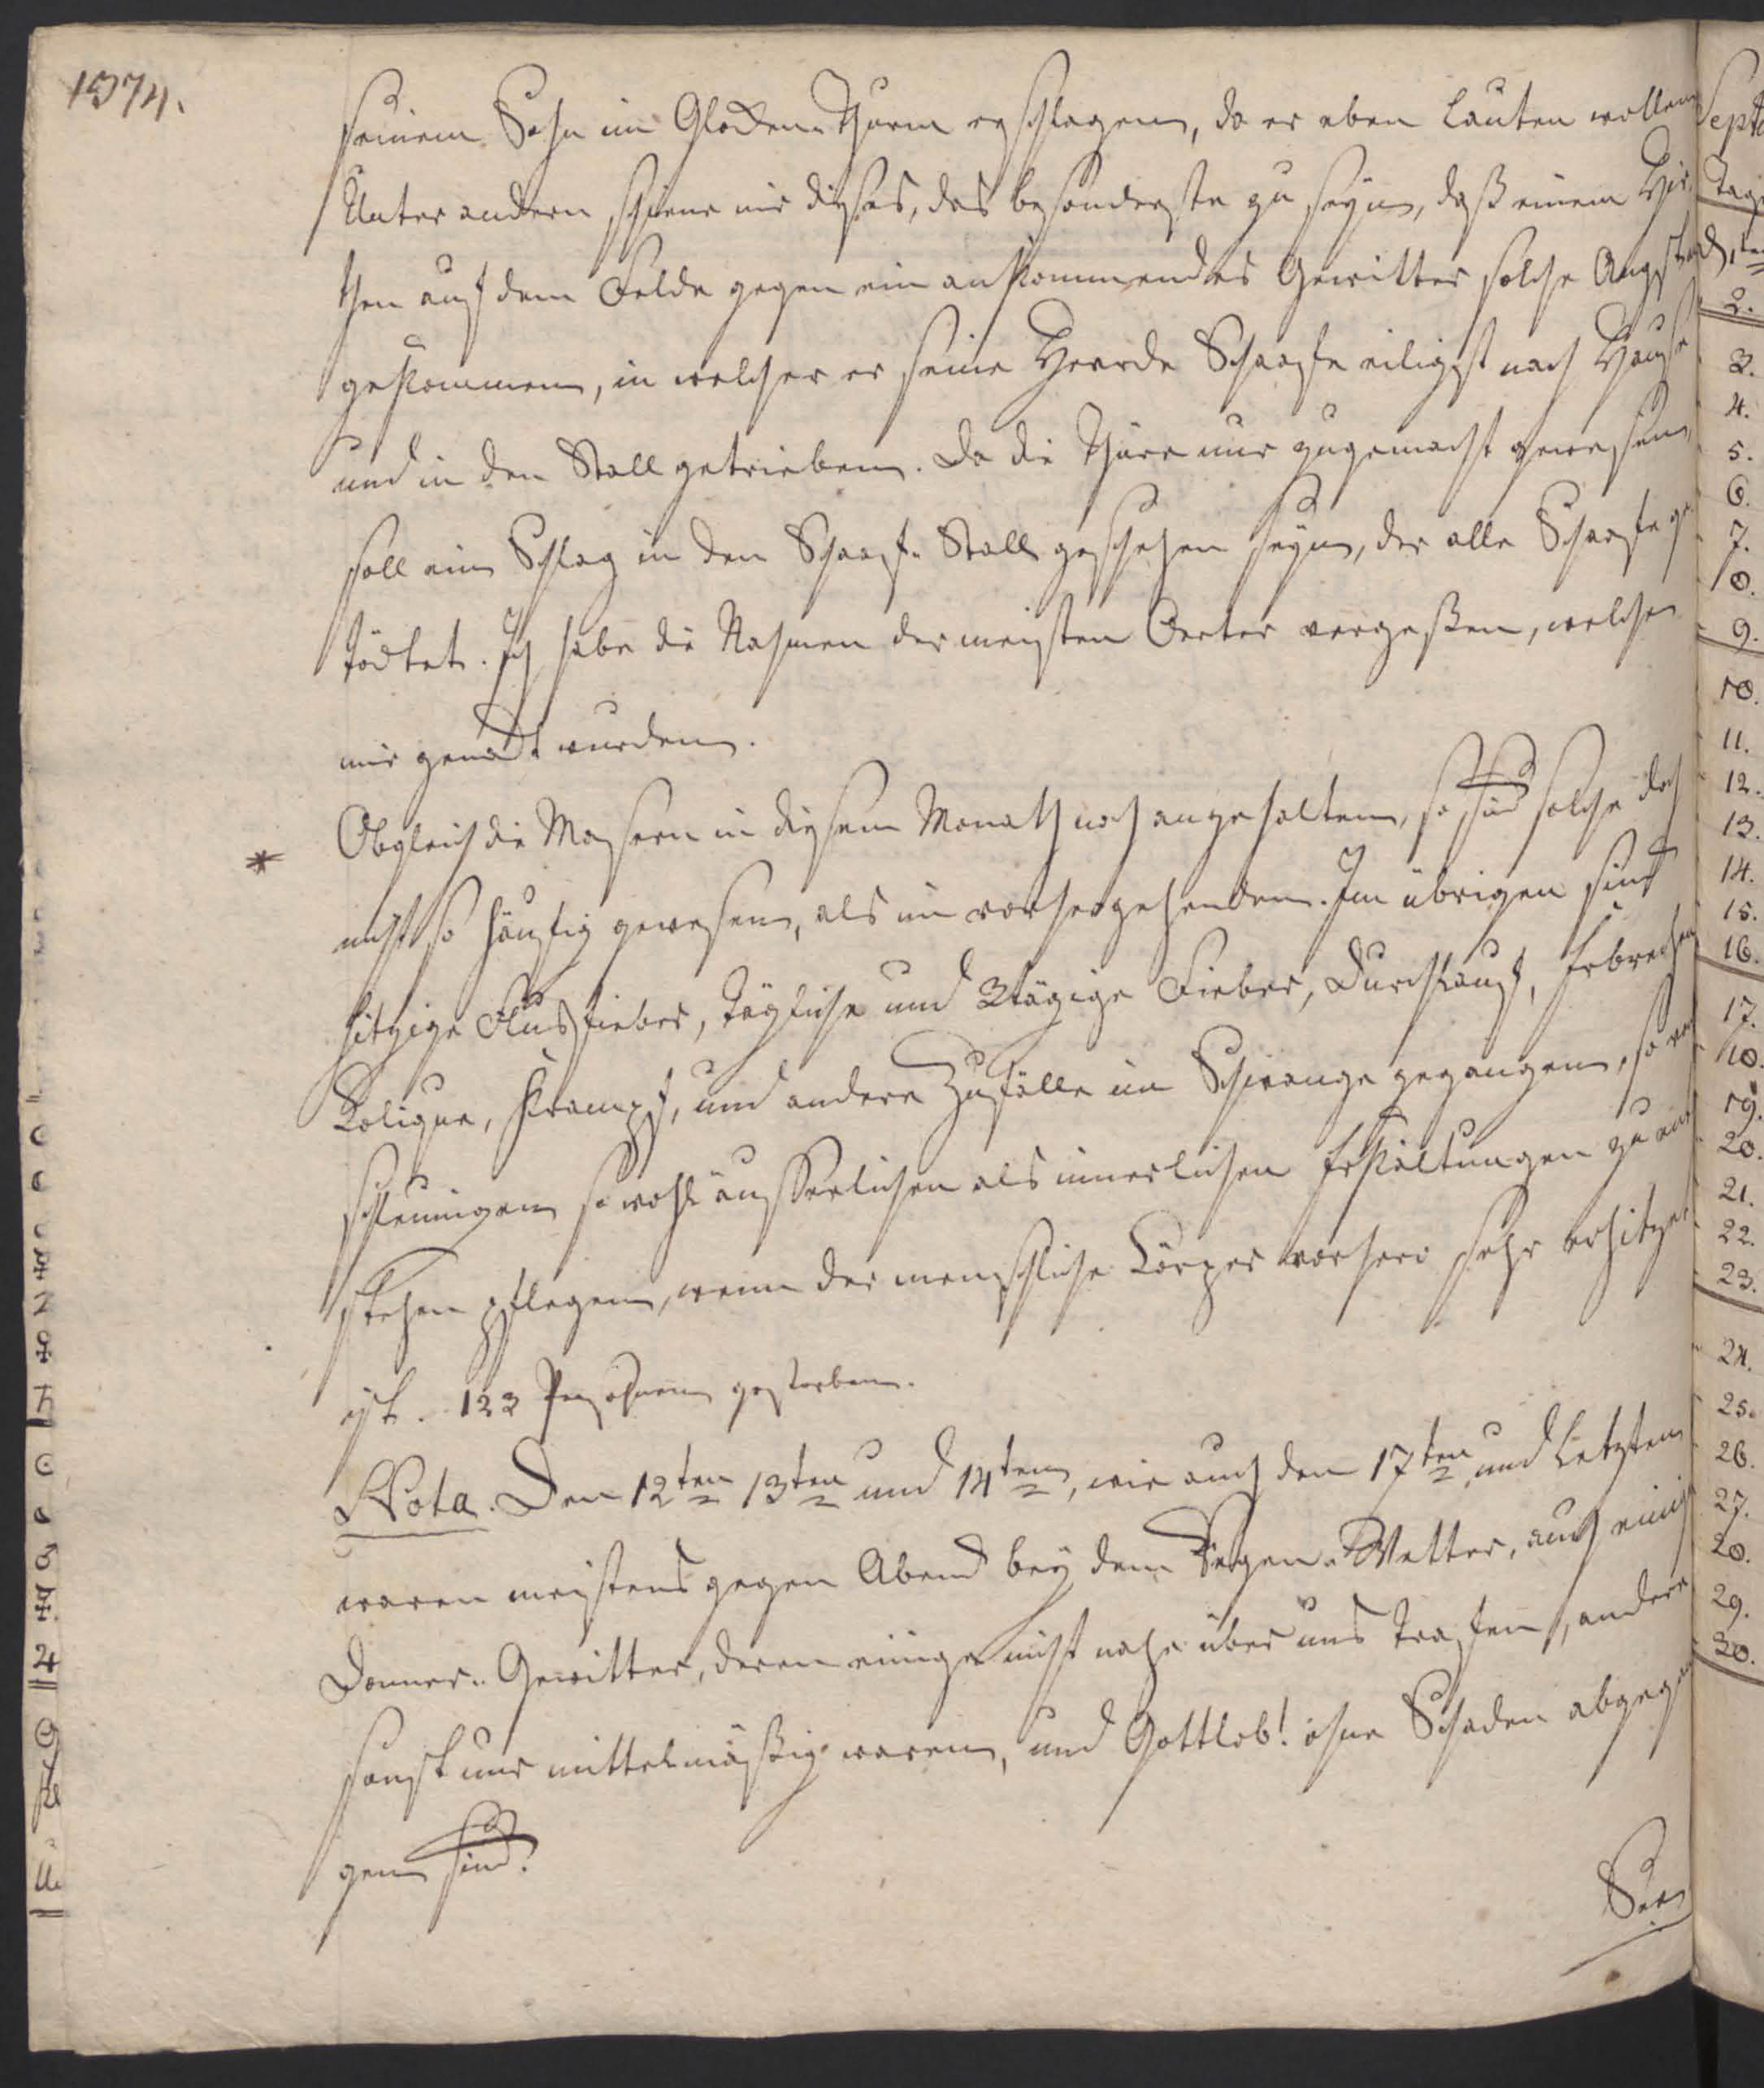 1574.
seinem Sohn im Glocken-Thurm erschlagen, da er eben Lauten wollen
Unter andern schiene mir dieses, das besonderste zu seyn, daß einem Hir-
ten auf dem Felde gegen ein ankommendes Gewitter solche Angst
gekommen, in welcher er seine Heerde Schaafe eiligst nach Hause
und in den Stall getrieben. Da die Thüre nur zugemacht gewesen,
soll ein Schlag in den Schaaf-Stall geschehen seyn, der alle Schaafe ge-
tödtet. Ich habe die Nahmen der meisten Oerter vergeßen, welche
mir genandt wurden.
* Obgleich die Masern in diesem Monath noch angehalten, so sind solche doch
nicht so häufig gewesen, als im vorhergehenden. Im übrigen sind
hitzige Flusfieber, Tägliche und 3tägige Fieber, Durchlauf, Erbrechen
Kolique, Krampf, und andere Zufälle im Schwange gegangen, so von
schleunigen sowohl äusserlichen als innerlichen Erkältungen zu ent-
stehen pflegen, wenn der menschliche Körper vorhero sehr erhitzet
ist. 123 Persohnen gestorben.
Nota. Den 12ten 13ten und 14ten, wie auch den 17ten und Letzten
waren meistens gegen Abend bey dem Regen-Wetter, auch einige
Donner-Gewitter, deren einige nicht nahe über uns trafen, andere
sonst nur mittelmäßig waren, und Gottlob! ohne Schaden abgegan-
gen sind.
Septb
Tage
2.
3.
4.
5.
6.
7.
8.
9.
10.
11.
12.
13.
14.
15.
16.
17.
18.
19.
20.
21.
22.
23.
24.
25.
26.
27.
28.
29.
30.